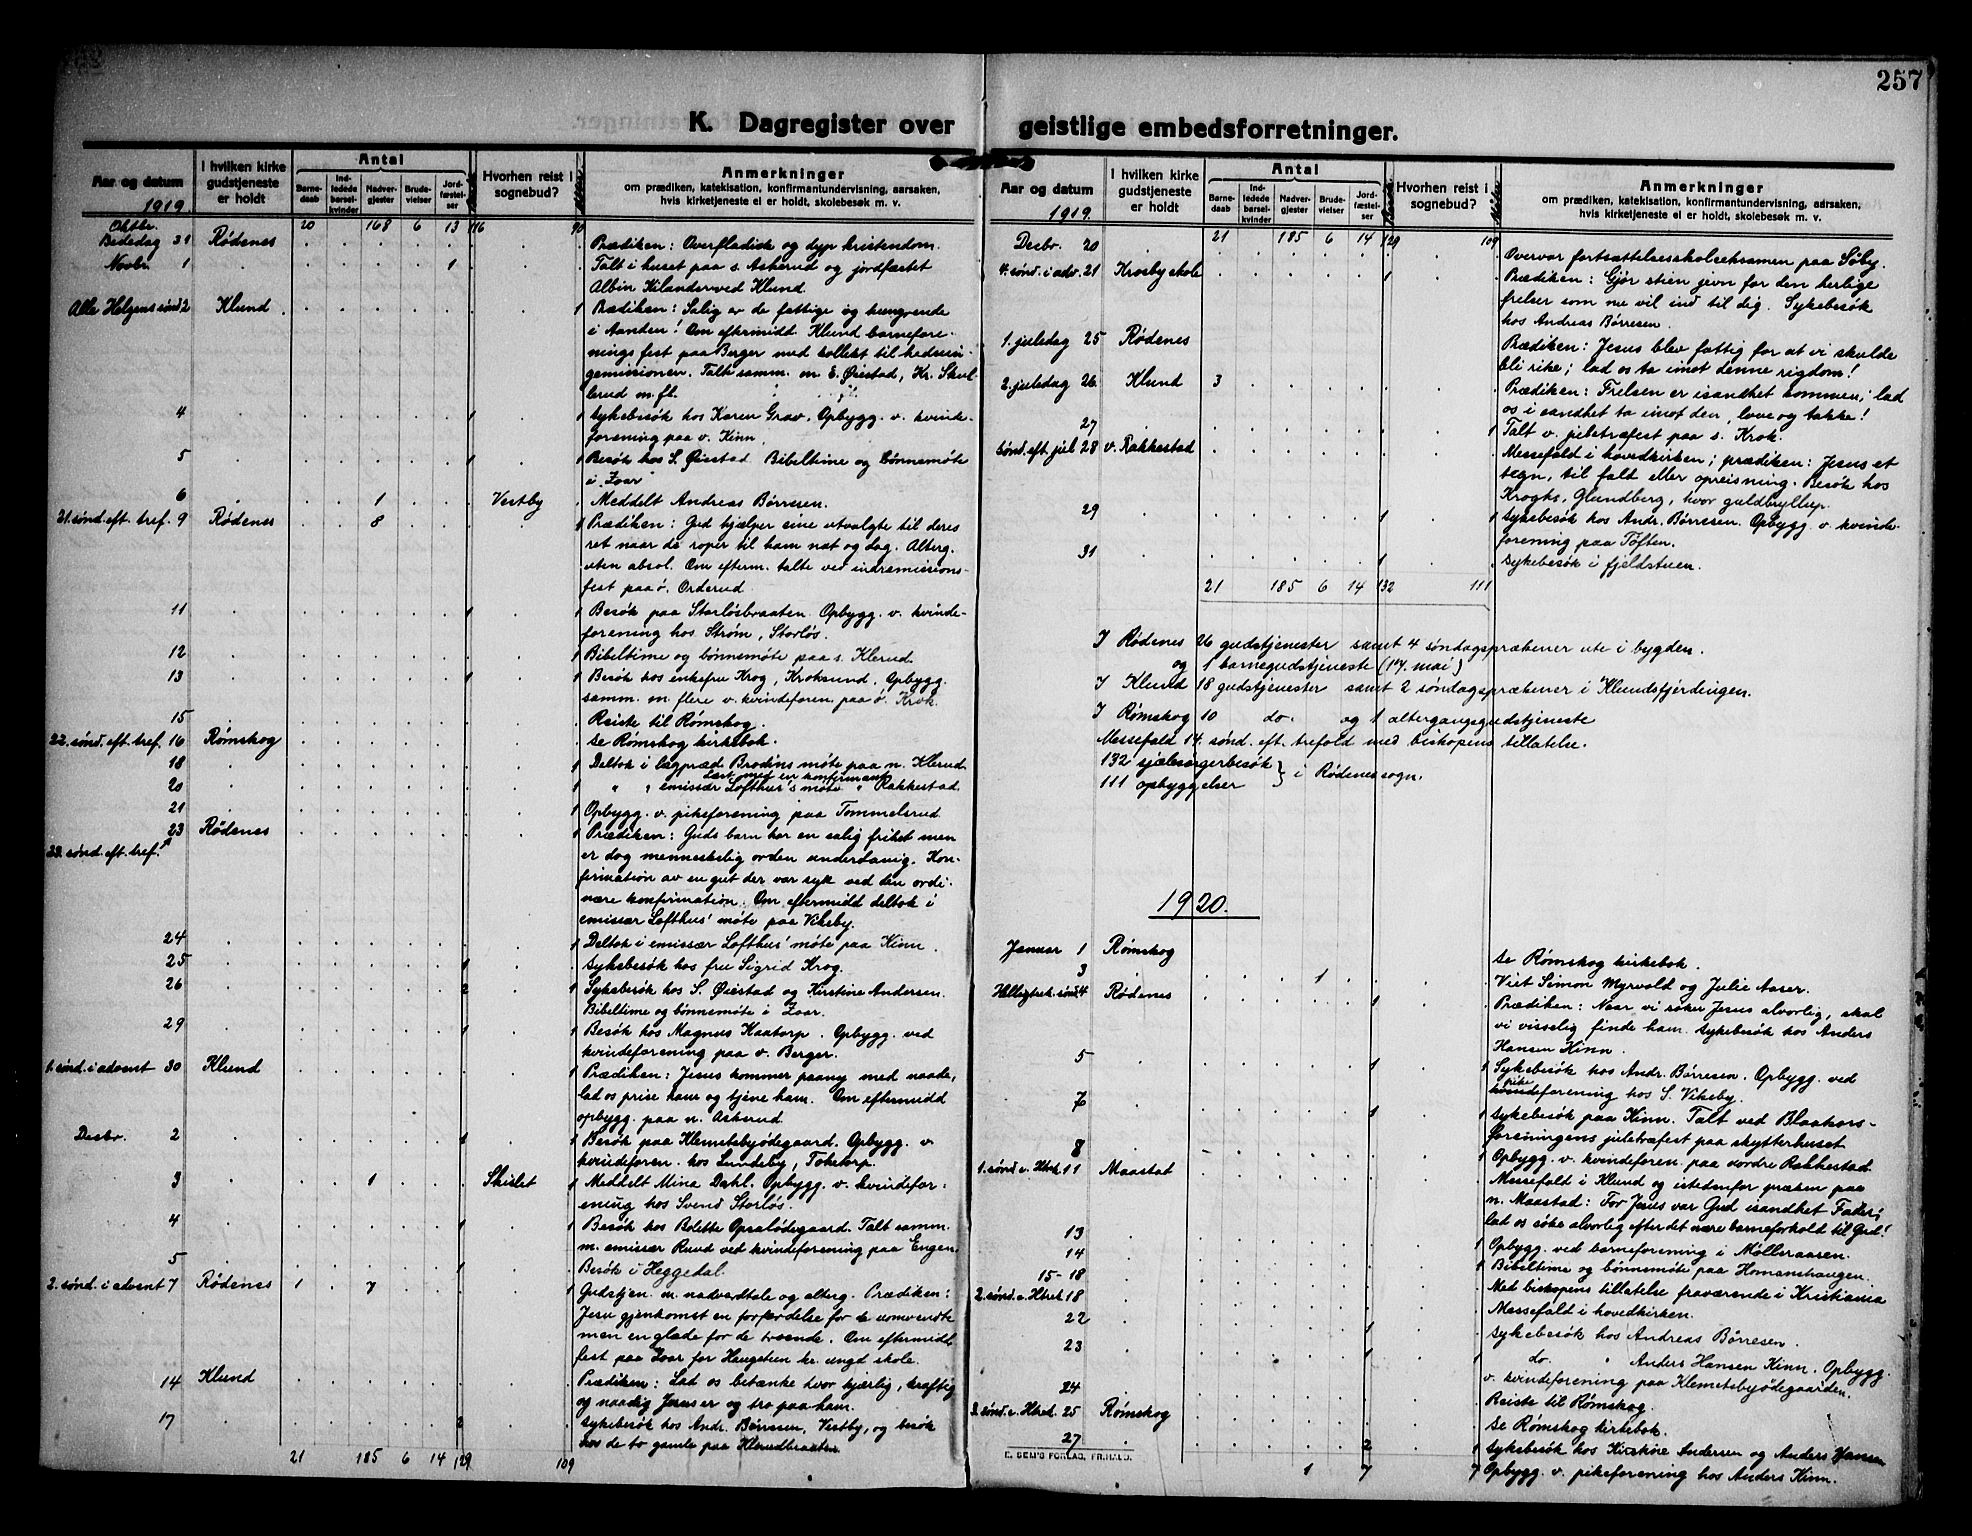 257
K. Dagregister over geistlige embedsforretninger.
Aar og datum
1919.
I hvilken kirke gudstjeneste er holdt
Antal
Barnedaab
Indledede barselkvinder
Nadvergjester
Brudevielser
Jordfæstelser
Hvorhen reist i sognebud?
Anmerkninger
om prædiken, katekisation, konfirmantundervisning, aarsaken, hvis kirketjeneste ei er holdt, skolebesøk m. v.
Oktbr. 20 168 6 13 116 90
Bededag 31 Rødenes Prædiken: Overfladisk og dyp kristendom.
Novbr. 1 1 Talt i huset paa s. Askerud og jordfæstet
Albin Kilander ved Klund.
Alle Helgens sønd 2 Klund 1 Prædiken: Salig er de fattige og hungrende
i Aanden! Om eftermidd. Klund barnefore-
nings fest paa Berger med kollekt til hednin-
gemissionen. Talt samm. m. E. Øiestad, Kr. Skul-
lerud m. fl.
4 1 1 Sykebesøk hos Karen Grav. Opbygg. v. kvinde-
forening paa v. Kinn.
5 1 1 Besøk hos S. Øiestad. Bibeltime og bønnemøte
i "Zoar"
6 1 Vestby Meddelt Andreas Børresen.
21. sønd. eft. tref. 9 Rødenes 8 1 Prædiken: Gud hjælper sine utvalgte til deres
ret naar de roper til ham nat og dag. Alterg.
uten absol. Om efterm. talte ved indremissions-
fest paa ø. Orderud.
11 1 1 Besøk paa Storløsbraaten. Opbygg. v. kvinde-
forening hos Strøm, Storløs.
12 1 Bibeltime og bønnemøte paa s. Klerud.
13 1 1 Besøk hos enkefru Krog, Kroksund, Opbygg.
samm. m. flere v. kvindeforen. paa ø. Krok.
15 Reiste til Rømskog.
22. sønd. eft. tref. 16 Rømskog Se Rømskog kirkebok.
18 1 Deltok i lægpræd Brodins møte paa n. Klerud.
Læst med en konfirmant
20 1 " " emissær Lofthus's møte " Rakkestad.
21 1 Opbygg. v. pikeforening paa Tommelsrud
23 Rødenes 1 Prædiken: Guds barn har en salig frihet men
23. sønd. eft. tref. er dog menneskelig orden underdanig. Kon-
firmation av en gut der var syk ved den ordi-
nære konfirmation. Om eftermidd deltok i
emissær Lofthus' møte paa Vikeby.
24 1 Deltok i emissær Lofthus' møte paa Kinn.
25 1 Sykebesøk hos fru Sigrid Krog.
26 2 1 Sykebesøk hos S. Øiestad og Kirstine Andersen.
Bibeltime og bønnemøte i Zoar.
29 1 1 Besøk hos Magnus Kaatorp. Opbygg. ved
kvindeforening paa v. Berger.
1. sønd. i advent 30 Klund 1 Prædiken: Jesus kommer paany med naade,
lad os prise ham og tjene ham. Om eftermidd
opbygg. paa n. Askerud.
Desbr. 2 1 1 Besøk paa Klemetsbyødegaard. Opbygg. v.
kvindeforen. hos Lundeby, Toketorp.
3 1 Skislet 1 Meddelt Mina Dahl. Opbygg. v. kvindefor-
ening hos Svend Storløs.
4 1 1 Besøk hos Bolette Opsalødegaard. Talt samm.
m. emissær Ruud ved kvindeforening paa Engen.
5 1 Besøk i Heggedal.
2. sønd. i advent 7 Rødenes 1 7 1 Gudstjen. m. nadverdtale og alterg. Prædiken:
Jesu gjenkomst en forfærdelse for de uomvendte
men en glæde for de troende. Om eftermidd
fest paa Zoar for Haugetun kr. ungd skole.
14 Klund Prædiken: Lad os betænke hvor kjærlig, kraftig
og naadig Jesus er og tro paa ham.
17 2 Sykebesøk hos Andr. Børresen, Vestby, og besøk
hos de to gamle paa Klerudbraaten
21 185 6 14 129 109
Aar og datum
1919.
I hvilken kirke gudstjeneste er holdt
Antal
Barnedaab
Indledede barselkvinder
Nadvergjester
Brudevielser
Jordfæstelser
Hvorhen reist i sognebud?
Anmerkninger
om prædiken, katekisation, konfirmantundervisning, aarsaken, hvis kirketjeneste ei er holdt, skolebesøk m. v.
21 185 6 14 129 109
Desbr. 20 Overvar fortsættelsesskoleeksamen paa Søby.
4. sønd. i adv. 21 Krosby skole 1 Prædiken: Gjør stien jevn for den herlige
frelser som nu vil ind til dig. Sykebesøk
hos Andreas Børresen.
1. juledag 25 Rødenes Prædiken: Jesus blev fattig for at vi skulde
bli rike; lad os ta imot denne rigdom!
2. juledag 26. Klund 3 Prædiken: Frelsen er isandhet kommen; lad
os i sandhet ta imot den, love og takke!
27 1 Talt v. juletræfest paa s. Krok.
Sønd. eft. jul 28 v. Rakkestad Messefald i hovedkirken; prædiken: Jesus et
tegn, til fald eller opreisning. Besøk hos
Kroghs, Glundberg, hvor guldbryllup.
29 1 1 Sykebesøk hos Andr. Børresen. Opbygg. v. kvinde-
forening paa Toften.
31 1 Sykebesøk i fjeldstuen.
21 185 6 14 132 111
I Rødenes 26 gudstjenester samt 4 søndagsprækener ute i bygden.
og 1 barnegudstjeneste (17. mai)
I Klund 18 gudstjenester samt 2 søndagsprækener i Klundsfjerdingen.
I Rømskog 10 do. og 1 altergangsgudstjeneste
Messefald 14. sønd. eft. trefold. med biskopens tillatelse.
132 sjælesørgerbesøk
111 opbyggelser } i Rødenes sogn.
1920.
Januar 1 Rømskog Se Rømskog kirkebok.
3 1 Viet Simon Myrvold og Julie Aaser.
Helligtrek. sønd. 4 Rødenes 1 Prædiken: Naar vi søker Jesus alvorlig, skal
vi visselig finde ham. Sykebesøk hos Anders
Hansen Kinn.
5 1 1 Sykebesøk hos Andr. Børresen. Opbygg. ved
pike
kvindeforening hos S. Vikeby.
7 1 1 Sykebesøk paa Kinn. Talt ved Blaakors-
foreningens juletræfest paa skytterhuset
8 1 Opbygg. v. kvindeforen. paa nordre Rakkestad.
1. sønd. e. Htrek. 11 Maastad Messefald i Klund og istedenfor præken paa
n. Maastad: For Jesus var Gud isandhet Fader;
lad os søke alvorlig efter det nære barneforhold til Gud!
13 1 Opbygg. ved barneforening i Mølleraasen.
14 1 Bibeltime og bønnemøte paa Homanshaugen.
15-18 Med biskopens tillatelse fraværende i Kristiania
2. sønd. e. Htrek. 18 Messefald i hovedkirken.
22 1 Sykebesøk hos Andreas Børresen.
23 1 1 do. " Anders Hansen Kinn. Opbygg.
v. kvindeforening paa Klemetsbyødegaarden.
24 Reiste til Rømskog.
3. sønd. e. Htrek. 25 Rømskog Se Rømskog kirkebok.
27 2 1 Sykebesøk hos Kirstine Andersen og Anders Hansen
Opbygg. v. pikeforening hos Anders Kinn.
E. SEM'S FORLAG, FR.HALD.
1 7 7